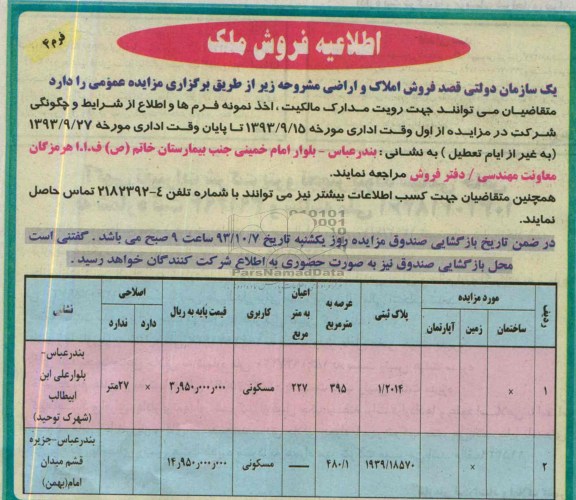 فرم ۴
اطلاعیه فروش ملک
یک سازمان دولتی قصد فروش املاک و اراضی مشروحه زیر از طریق برگزاری مزایده عمومی را دارد
متقاضیان می توانند جهت رویت مدارک مالکیت ، اخذ نمونه فرم ها و اطلاع از شرایط و چگونگی
شرکت در مزایده از اول وقت اداری مورخه ۱۳۹۳/۹/۱۵ تا پایان وقت اداری مورخه ۱۳۹۳/۹/۲۷
(به غیر از ایام تعطیل ) به نشانی : بندرعباس - بلوار امام خمینی جنب بیمارستان خاتم (ص) ف.ا.ا هرمزگان
معاونت مهندسی / دفتر فروش مراجعه نمایند.
همچنین متقاضیان جهت کسب اطلاعات بیشتر نیز می توانند با شماره تلفن ۴-۲۱۸۲۳۹۲ تماس حاصل
نمایند.
در ضمن تاریخ بازگشایی صندوق مزایده روز یکشنبه تاریخ ۹۳/۱۰/۷ ساعت ۹ صبح می باشد . گفتنی است
محل بازگشایی صندوق نیز به صورت حضوری به اطلاع شرکت کنندگان خواهد رسید .
ParsNamadData
ردیف مورد مزایده پلاک ثبتی عرصه به مترمربع اعیان به متر مربع کاربری قیمت پایه به ریال اصلاحی نشانی
ساختمان زمین آپارتمان دارد ندارد
۱ × ۱/۲۰۱۴ ۳۹۵ ۲۲۷ مسکونی ۳٫۹۵۰٫۰۰۰٫۰۰۰ × ۲۷متر بندرعباس- بلوارعلی ابن ابیطالب (شهرک توحید)
۲ × ۱۹۳۹/۱۸۵۷۰ ۴۸۰/۱ — مسکونی ۱۴٫۹۵۰٫۰۰۰٫۰۰۰ بندرعباس-جزیره قشم میدان امام(بهمن)